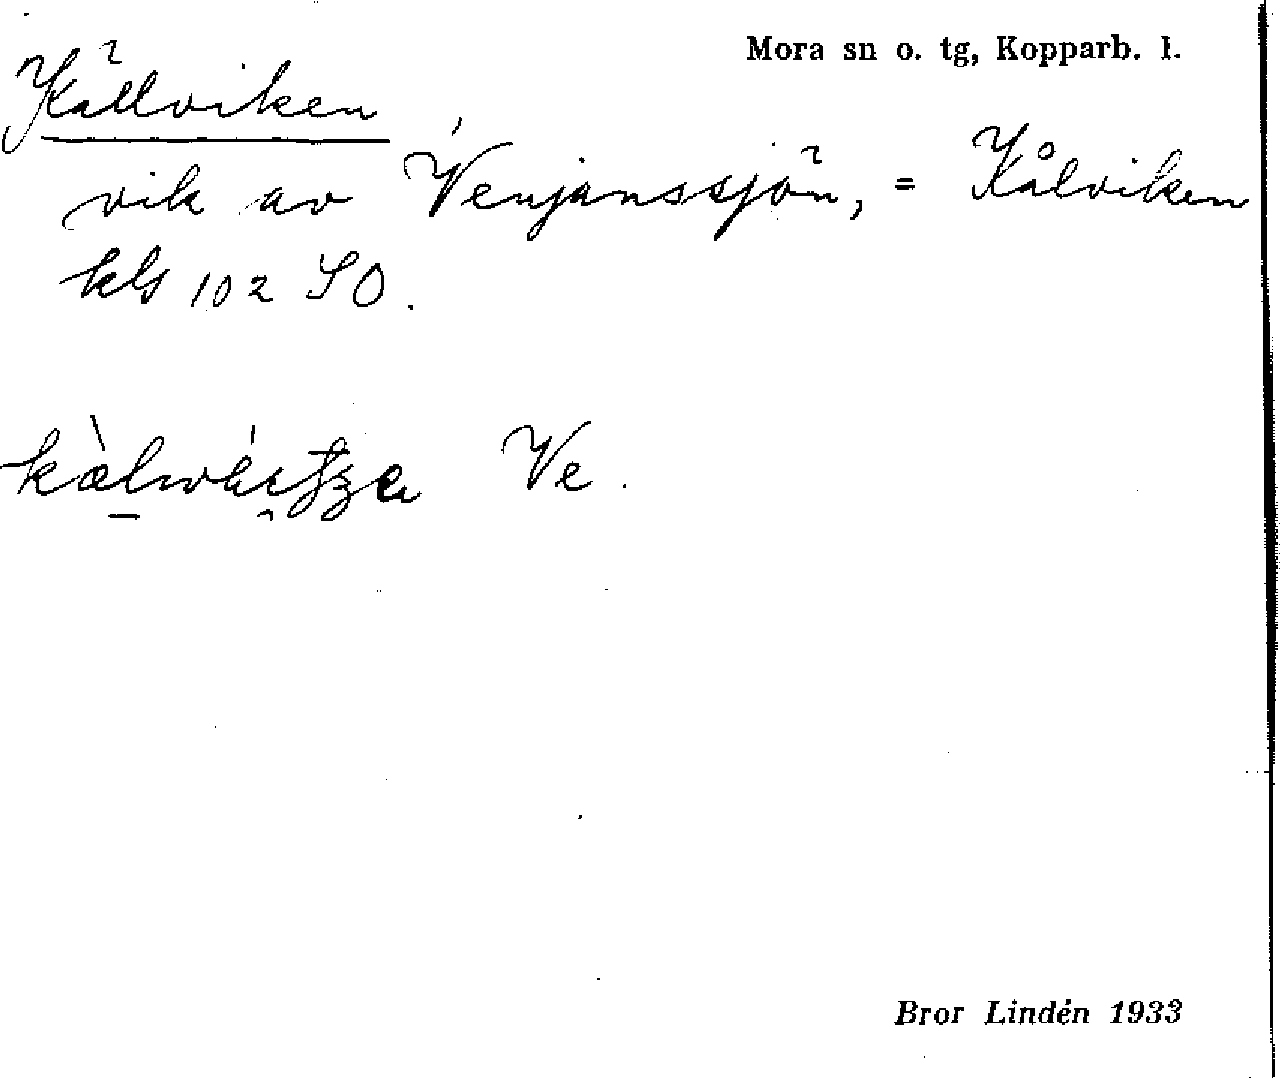 Mora sn o. tg, Kopparb. l.
Källviken
vik av Venjanssjön, = Kålviken
kls 102 SO.
Ve.
Bror Lindén 1933